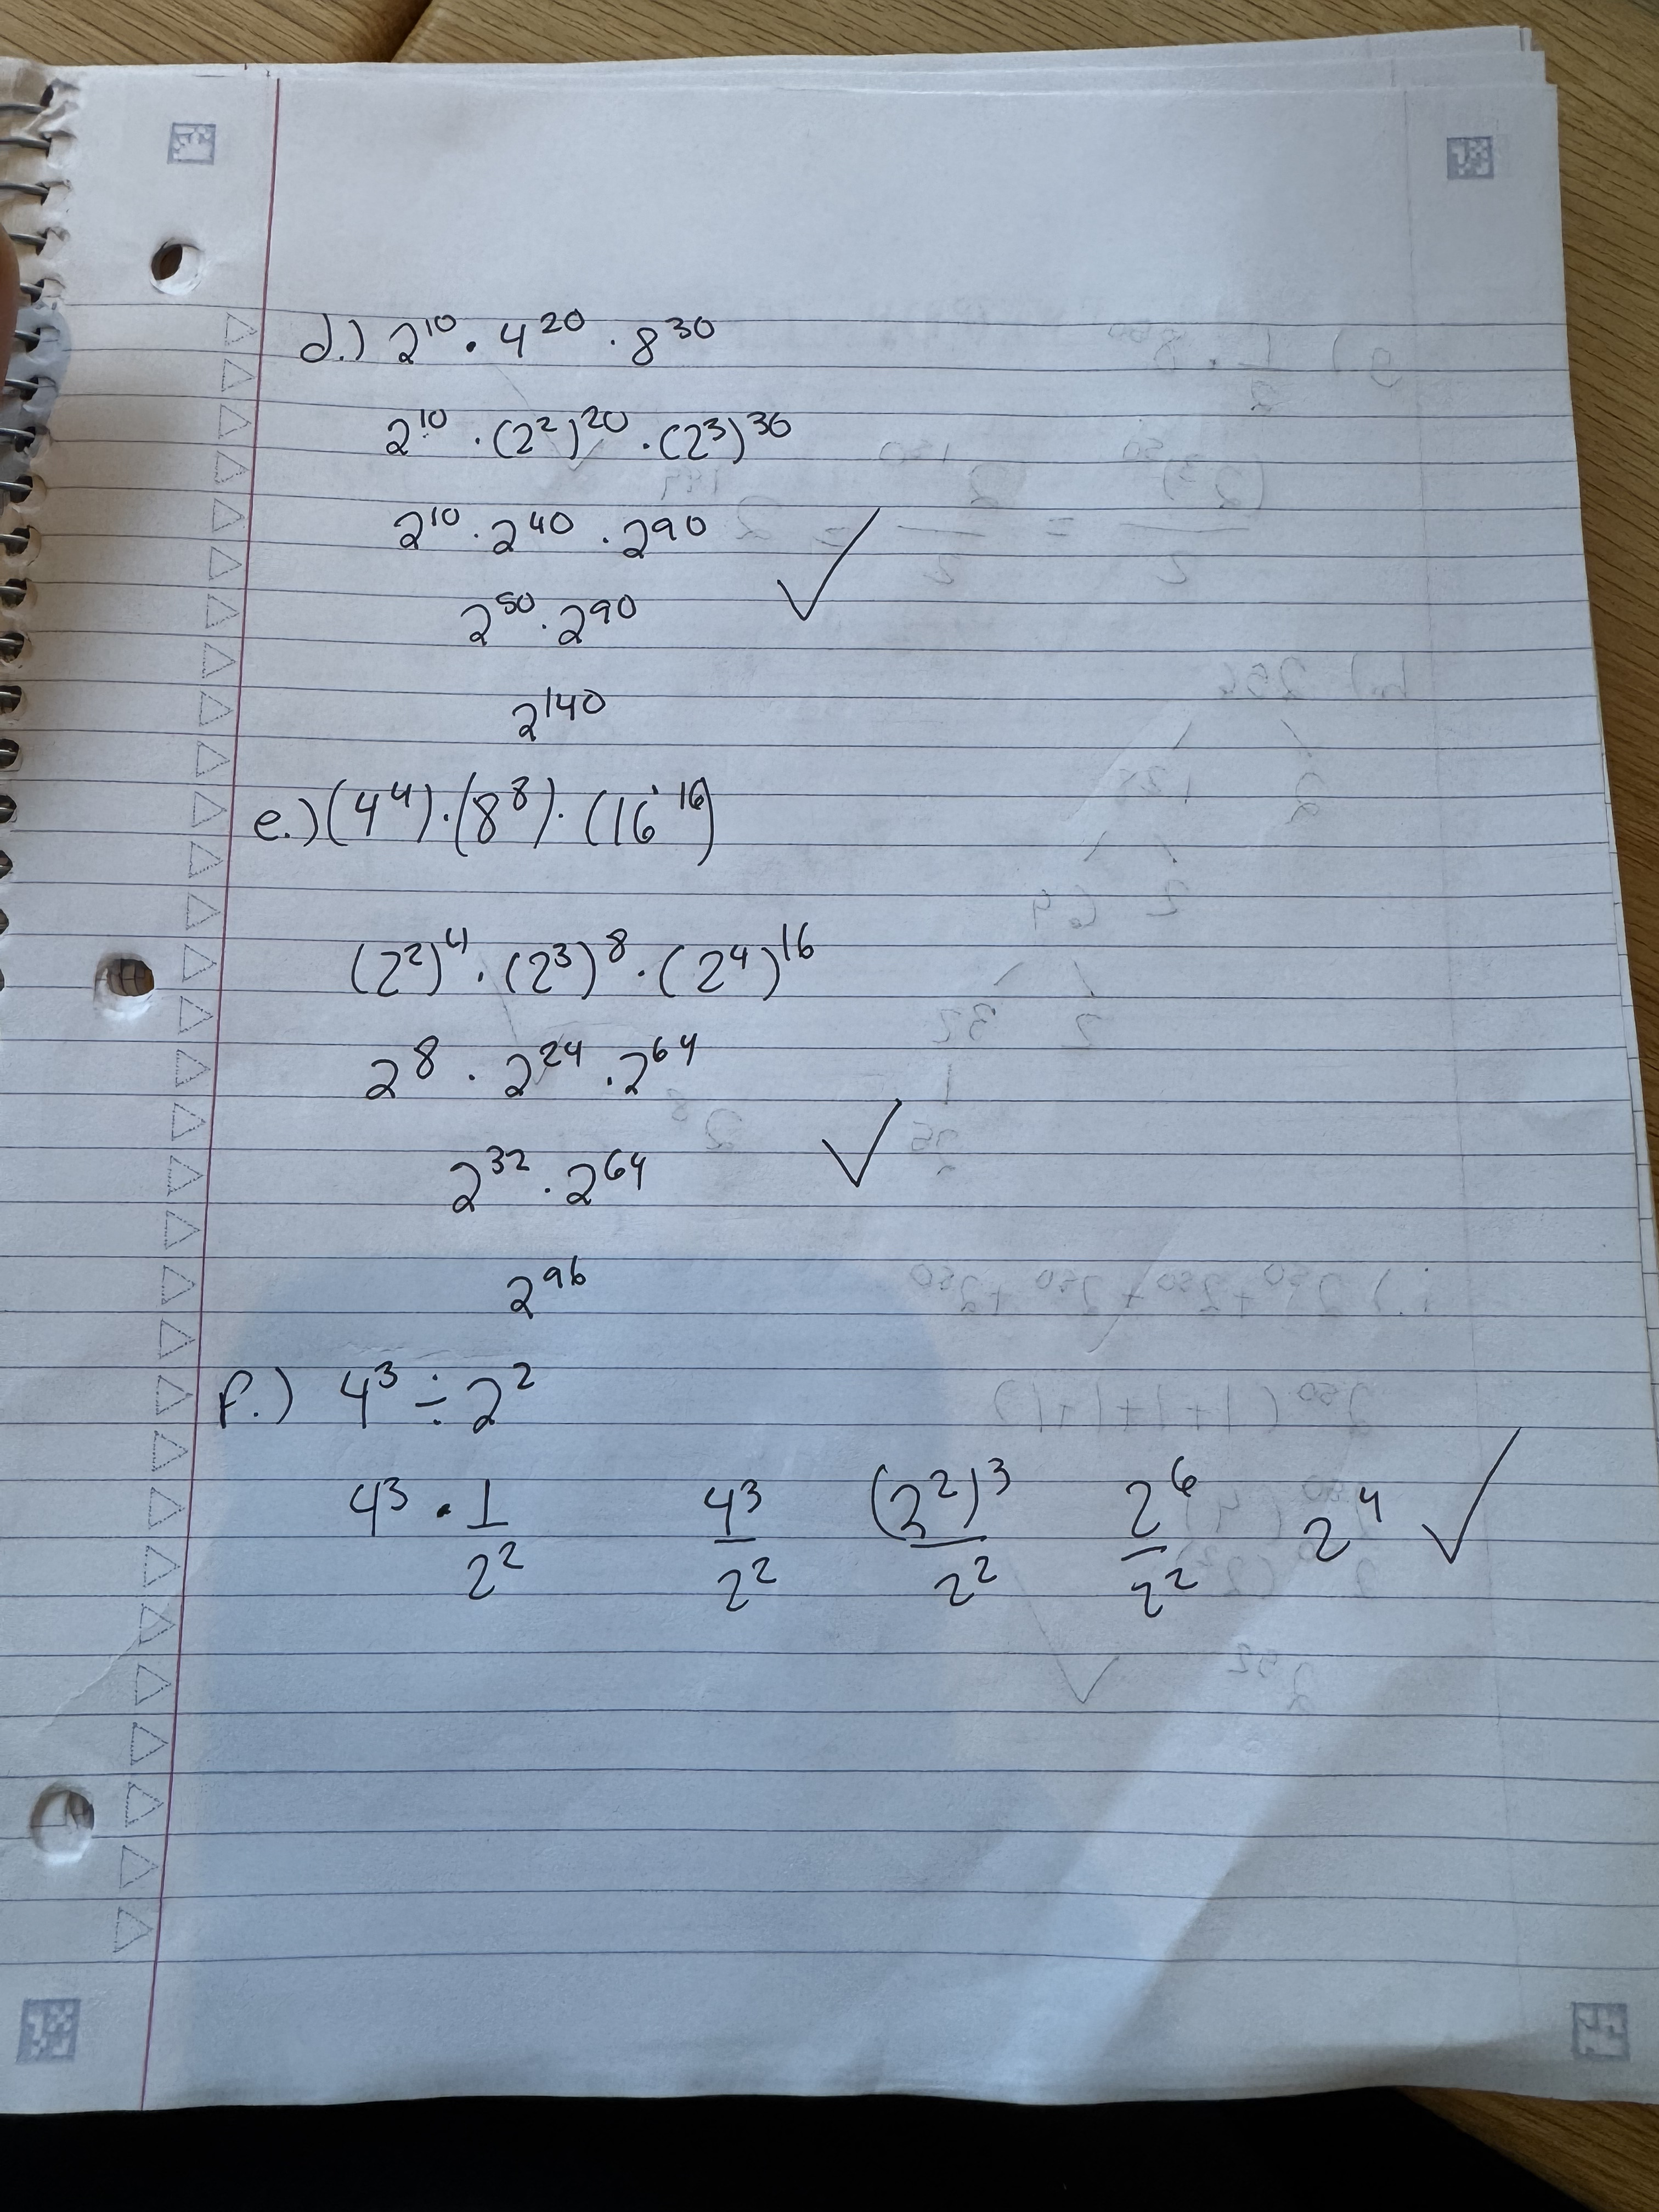 d.) 2¹⁰ · 4²⁰ · 8³⁰
2¹⁰ · (2²)²⁰ · (2³)³⁰
2¹⁰ · 2⁴⁰ · 2⁹⁰
2⁵⁰ · 2⁹⁰
2¹⁴⁰
e.) (4⁴) · (8⁸) · (16¹⁶)
(2²)⁴ · (2³)⁸ · (2⁴)¹⁶
2⁸ · 2²⁴ · 2⁶⁴
✓
2³² · 2⁶⁴ ✓
2⁹⁶
f.) 4³ ÷ 2²
4³ · 1/2² 4³/2² (2²)³/2² 2⁶/2² 2⁴ ✓